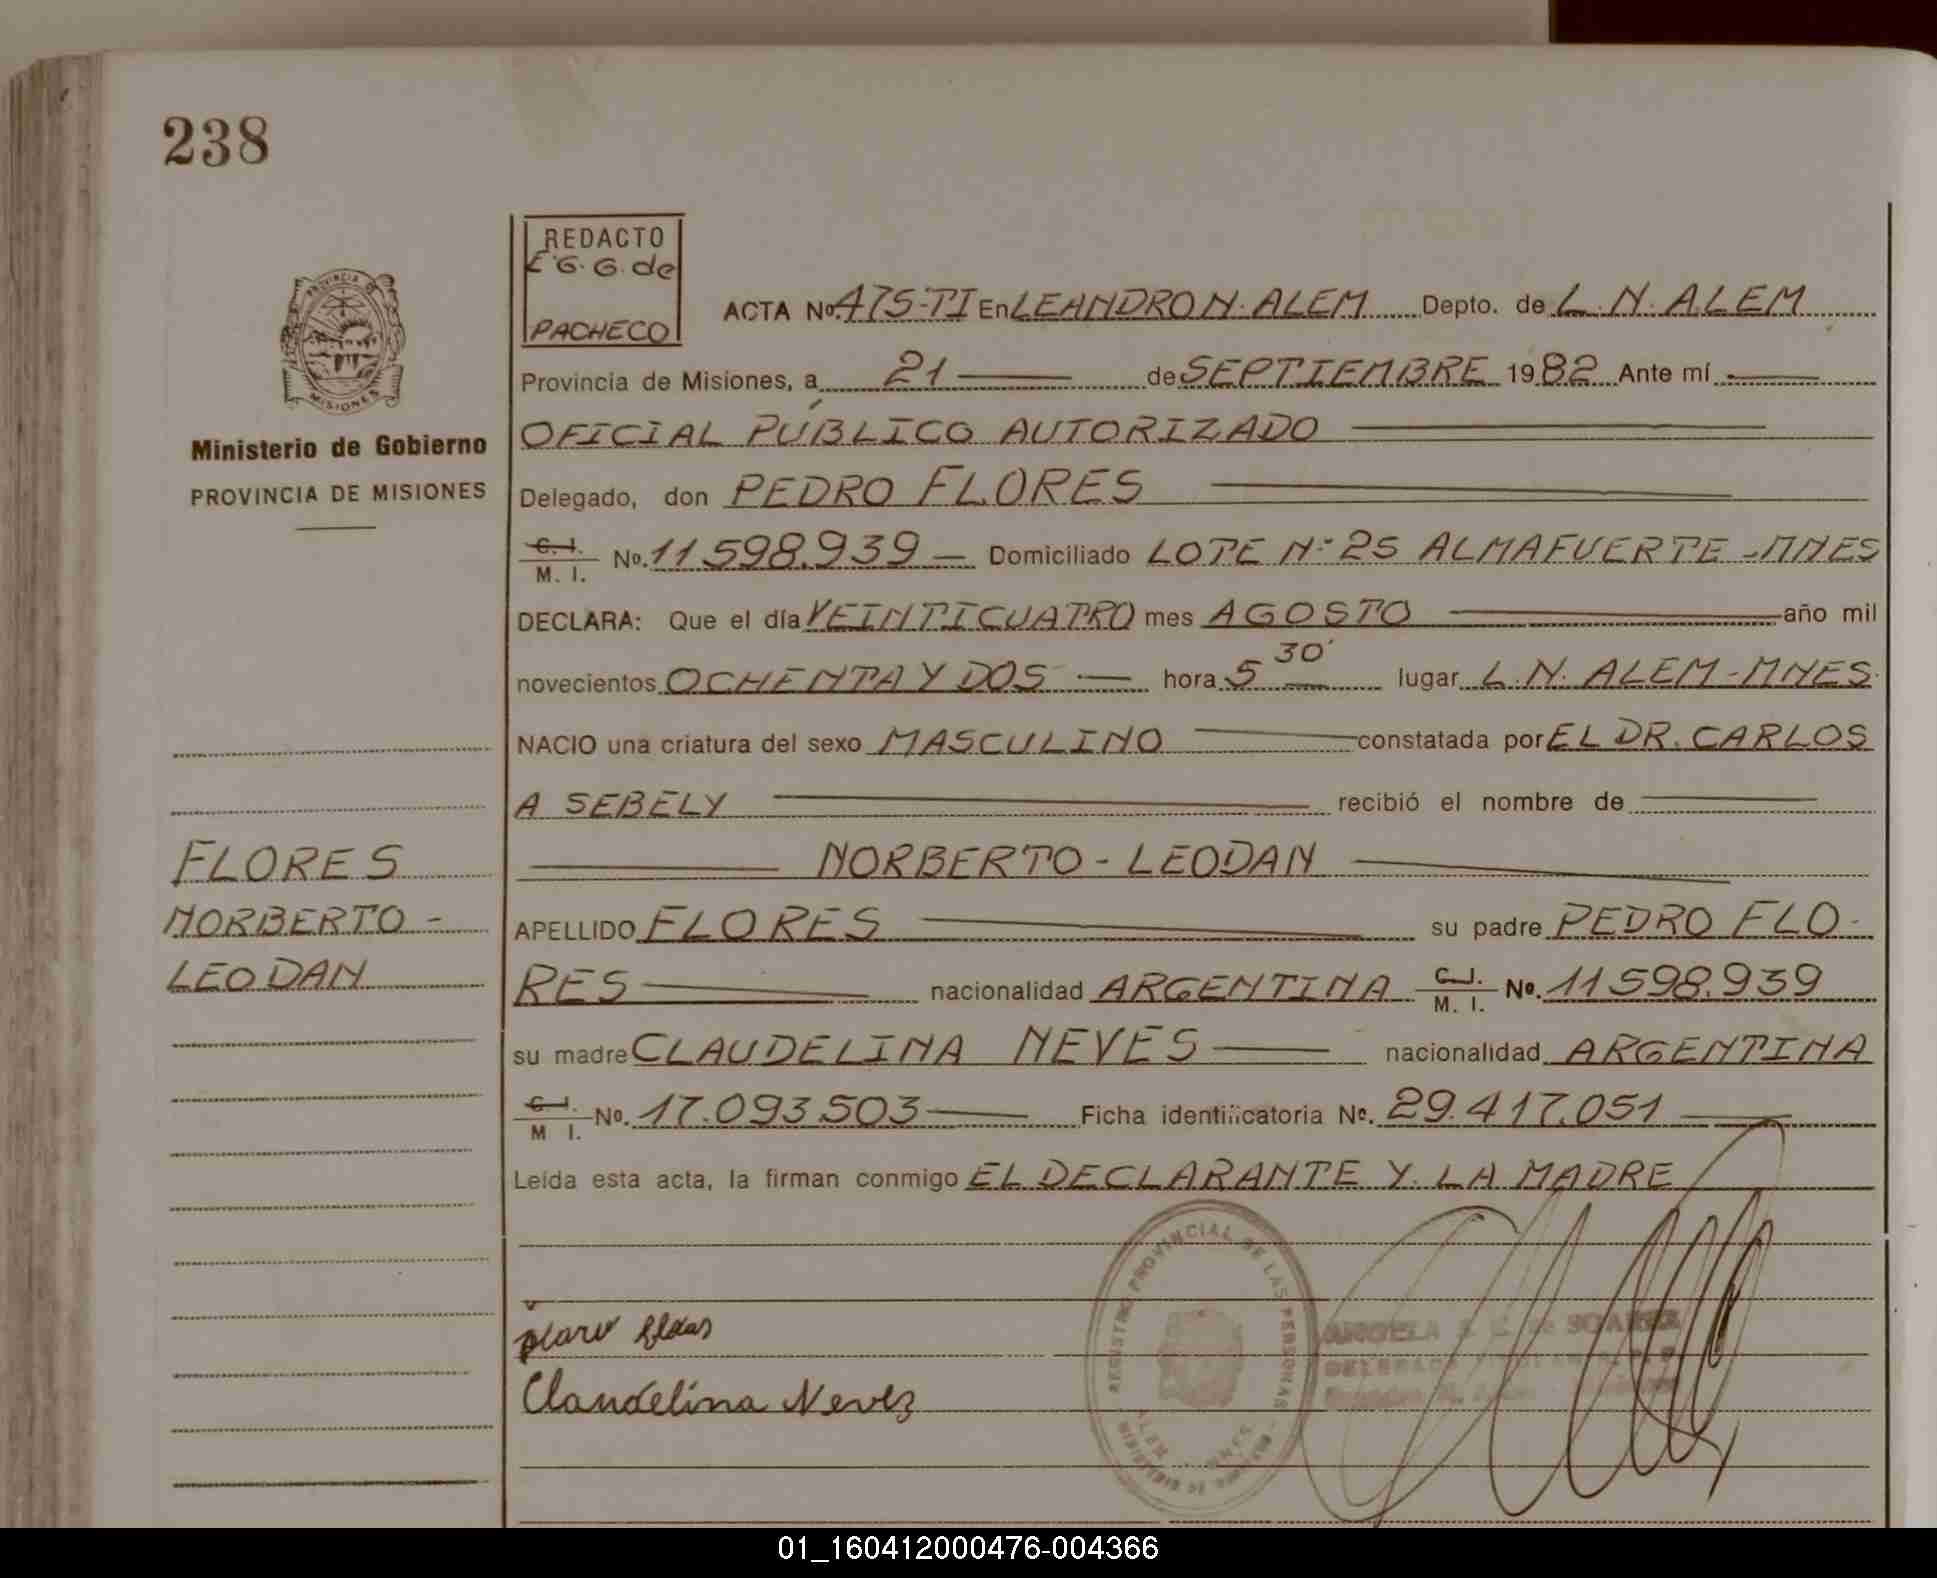 238
REDACTO
E.G.G. de
PACHECO
PROVINCIA DE
MISIONES
Ministerio de Gobierno
PROVINCIA DE MISIONES
ACTA Nº. 475-TI En LEANDRO N. ALEM Depto. de L. N. ALEM
Provincia de Misiones, a 21 de SEPTIEMBRE 1982 Ante mí
OFICIAL PÚBLICO AUTORIZADO
Delegado, don PEDRO FLORES
C. I. M. I. Nº. 11.598.939 Domiciliado LOTE Nº 25 ALMAFUERTE - MNES
DECLARA: Que el día VEINTICUATRO mes AGOSTO año mil
novecientos OCHENTA Y DOS hora 5 30' lugar L. N. ALEM - MNES.
NACIO una criatura del sexo MASCULINO constatada por EL DR. CARLOS
A SEBELY recibió el nombre de
NORBERTO - LEODAN
FLORES
NORBERTO -
LEODAN
APELLIDO FLORES su padre PEDRO FLO-
RES nacionalidad ARGENTINA C. I. M. I. Nº. 11.598.939
su madre CLAUDELINA NEVES nacionalidad ARGENTINA
C. I. M I. Nº. 17.093.503 Ficha identificatoria Nº. 29.417.051
Leída esta acta, la firman conmigo EL DECLARANTE Y LA MADRE
REGISTRO PROVINCIAL DE LAS PERSONAS
ANGELA de SOAREZ
Claudelina Neves
01_160412000476-004366